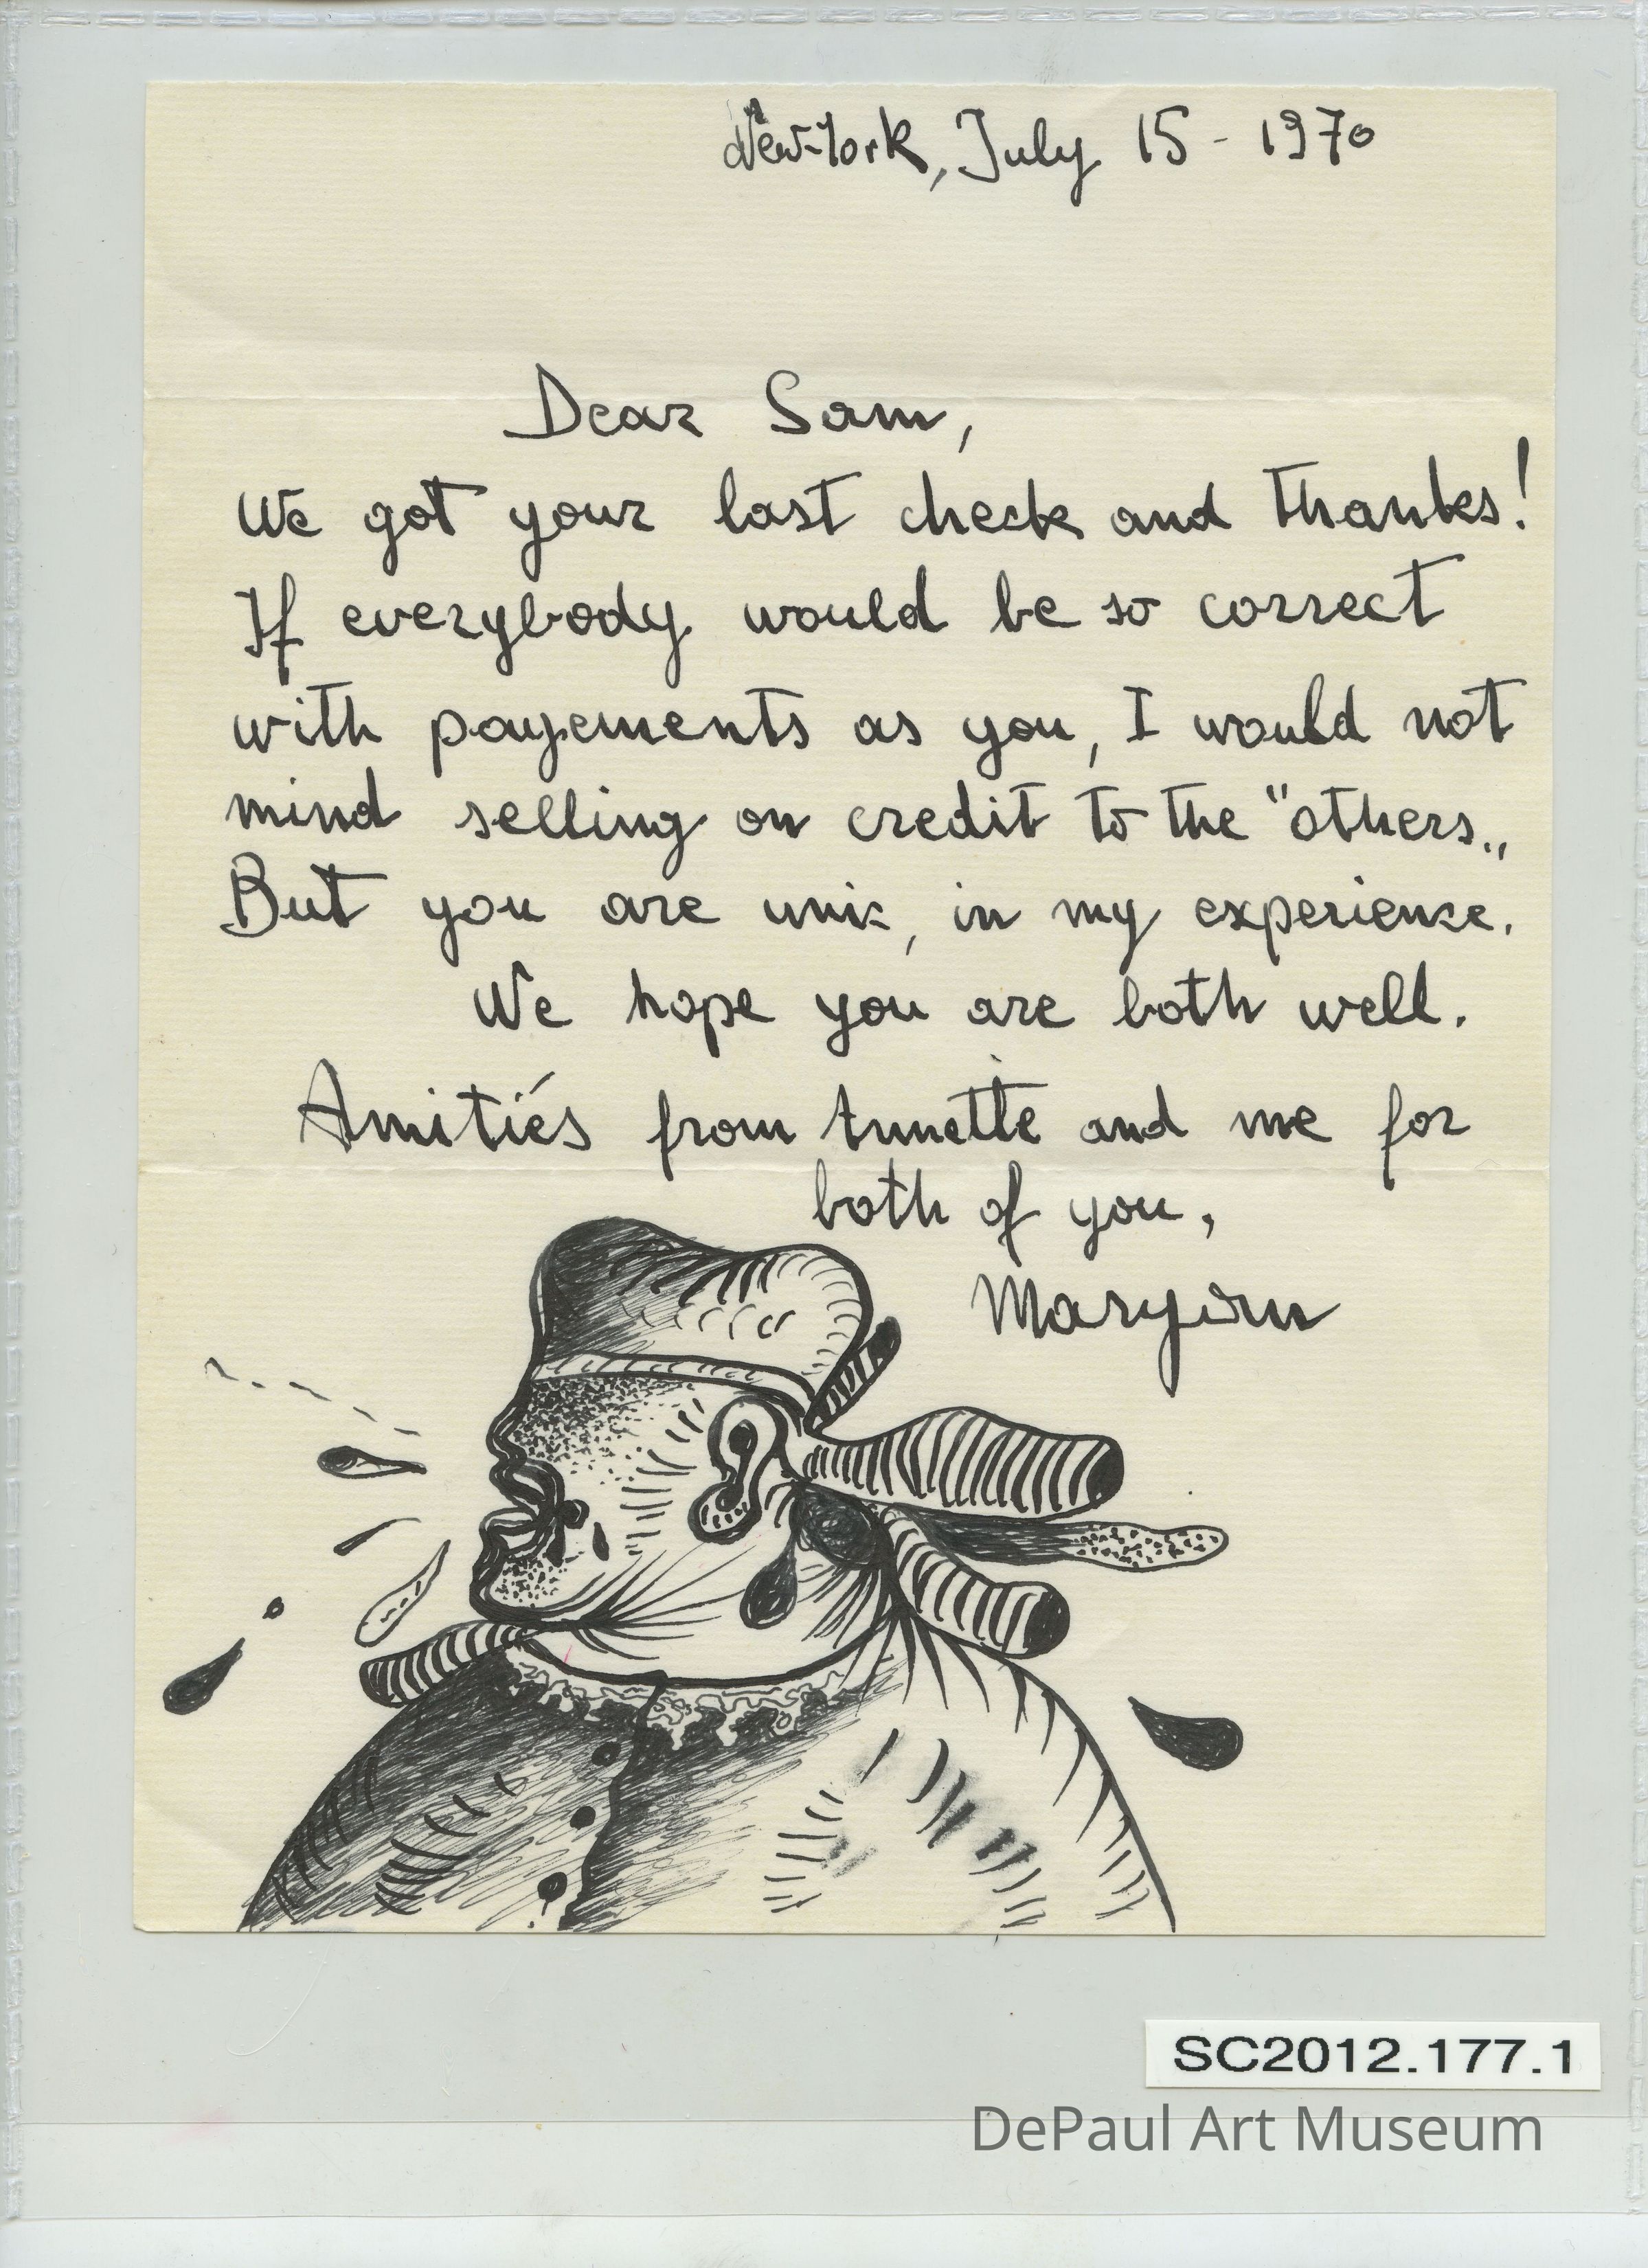 New-York, July 15 - 1970
Dear Sam,
We got your last check and thanks!
If everybody would be so correct
with payements as you, I would not
mind selling on credit to the "others„
But you are unik, in my experience.
We hope you are both well.
Amitiés from Annette and me for
both of you,
Maryan
SC2012.177.1
DePaul Art Museum